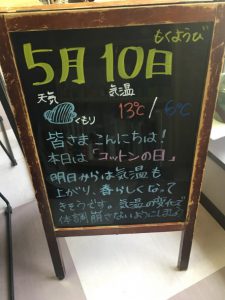 もくようび
5月10日
天気 気温
くもり 13℃/6℃
皆さまこんにちは!
本日は「コットンの日」
明日からは気温も
上がり、春らしくなって
きそうです。気温の変化で
体調崩さないようにしましょ